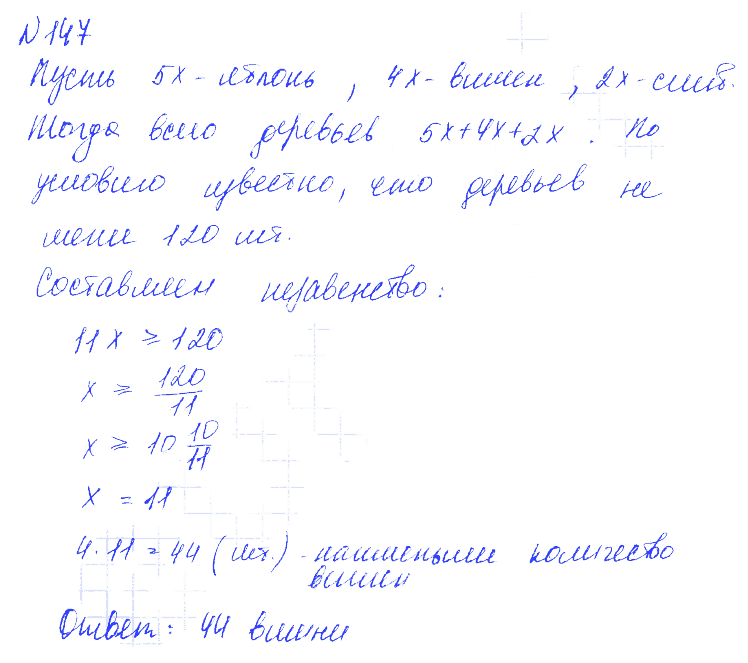 N 147
Пусть 5x - яблонь, 4x - вишен, 2x - слив.
Тогда всего деревьев 5x+4x+2x. По
условию известно, что деревьев не
менее 120 шт.
Составляем неравенство:
11x ≥ 120
x ≥ 120/11
x ≥ 10 10/11
x = 11
4·11=44 (шт.) - наименьшее количество
вишен
Ответ: 44 вишни